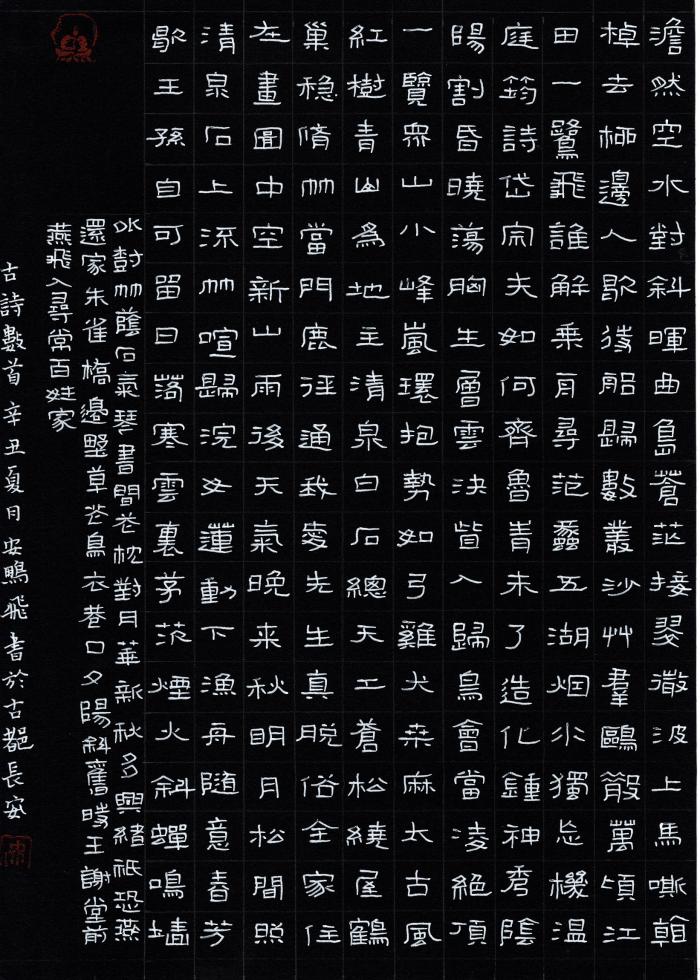 澹然空水對斜暉曲島蒼茫接翠微波上馬嘶看
棹去柳邊人歇待船歸數叢沙艸羣鷗散萬頃江
田一鷺飛誰解乘舟尋范蠡五湖烟水獨忘機溫
庭筠詩岱宗夫如何齊魯青未了造化鍾神秀陰
陽割昏曉蕩胸生層雲決眥入歸鳥會當凌絕頂
一覽眾山小峰嵐環抱勢如弓雞犬桑麻太古風
紅樹青山為地主清泉白石總天工蒼松繞屋鶴
巢穩脩竹當門鹿徑通我愛先生真脫俗全家住
在畫圖中空新山雨後天氣晚来秋明月松間照
清泉石上流竹喧歸浣女蓮動下漁舟隨意春芳
歇王孫自可留日落寒雲裏茅茨煙火斜蟬鳴墙
水竹蔭石氣琴書間巻枕對月華新秋多興緒祇恐燕
還家朱雀橋邊野草花烏衣巷口夕陽斜舊時王謝堂前
燕飛入尋常百姓家
古詩數首辛丑夏月安鵬飛書於古都長安